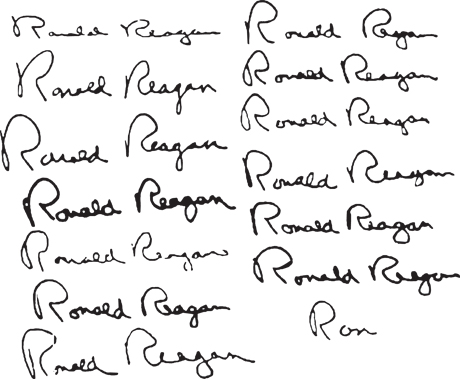 Ronald Reagan
Ronald Reagan
Ronald Reagan
Ronald Reagan
Ronald Reagan
Ronald Reagan
Ronald Reagan
Ronald Reagan
Ronald Reagan
Ronald Reagan
Ronald Reagan
Ronald Reagan
Ronald Reagan
Ron